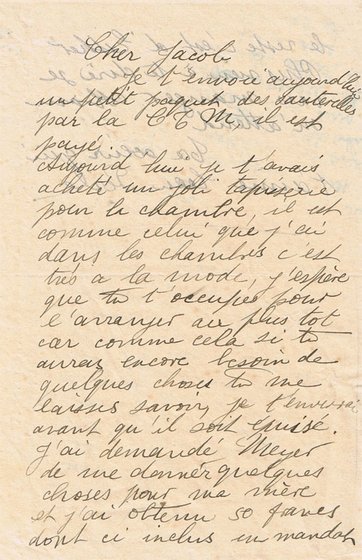 Cher Jacob
Je t'envoie aujourd'hui
un petit paquet des sauterelles
par la C.T.M, il est
payé.
Aujourd hui je t'avais
acheté un joli tapiserie
pour la chambre, il est
comme celui que j'ai
dans les chambres c'est
très a la mode, j'espère
que tu t'occupes pour
l'arranger au plus tot
car comme cela si tu
auras encore besoin de
quelques choses tu me
laisses savoir, je t'enverrai
avant qu'il soit épuisé.
J'ai demandé Meyer
de me donner quelques
choses pour ma mère
et j'ai obtenu 50 francs
dont ci inclus en mandat